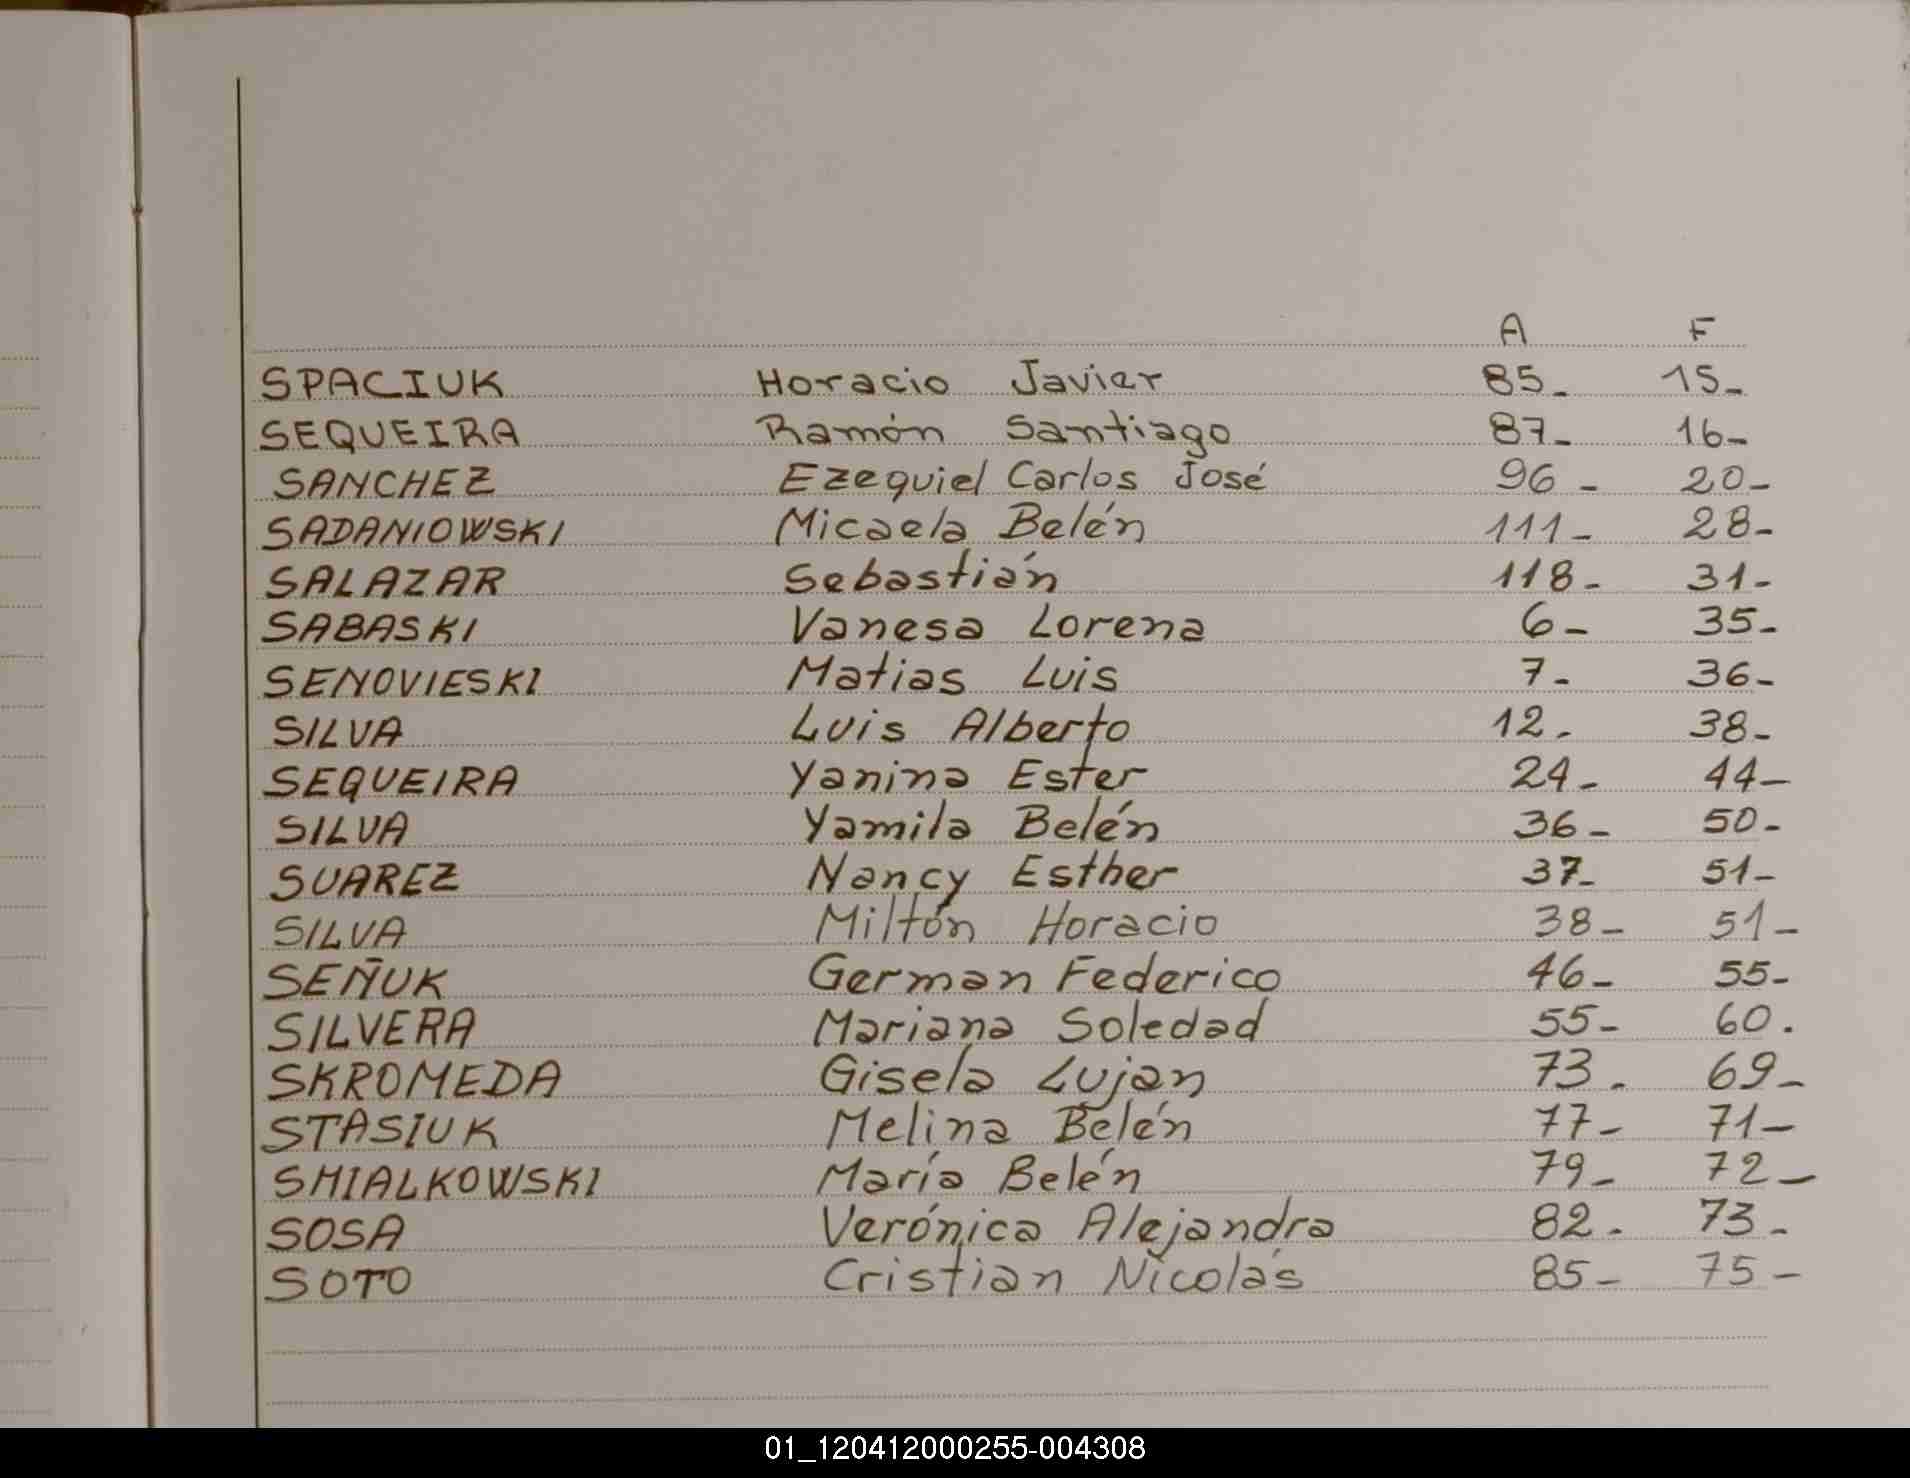 A F
SPACIUK Horacio Javier 85- 15-
SEQUEIRA Ramón Santiago 87- 16-
SANCHEZ Ezequiel Carlos José 96- 20-
SADANIOWSKI Micaela Belén 111- 28-
SALAZAR Sebastián 118- 31-
SABASKI Vanesa Lorena 6- 35-
SENOVIESKI Matias Luis 7- 36-
SILVA Luis Alberto 12- 38-
SEQUEIRA Yanina Ester 24- 44-
SILVA Yamila Belén 36- 50-
SUAREZ Nancy Esther 37- 51-
SILVA Miltón Horacio 38- 51-
SEÑUK German Federico 46- 55-
SILVERA Mariana Soledad 55- 60.
SKROMEDA Gisela Lujan 73. 69-
STASIUK Melina Belén 77- 71-
SMIALKOWSKI María Belén 79- 72-
SOSA Verónica Alejandra 82. 73-
SOTO Cristian Nicolás 85- 75-
01_120412000255-004308